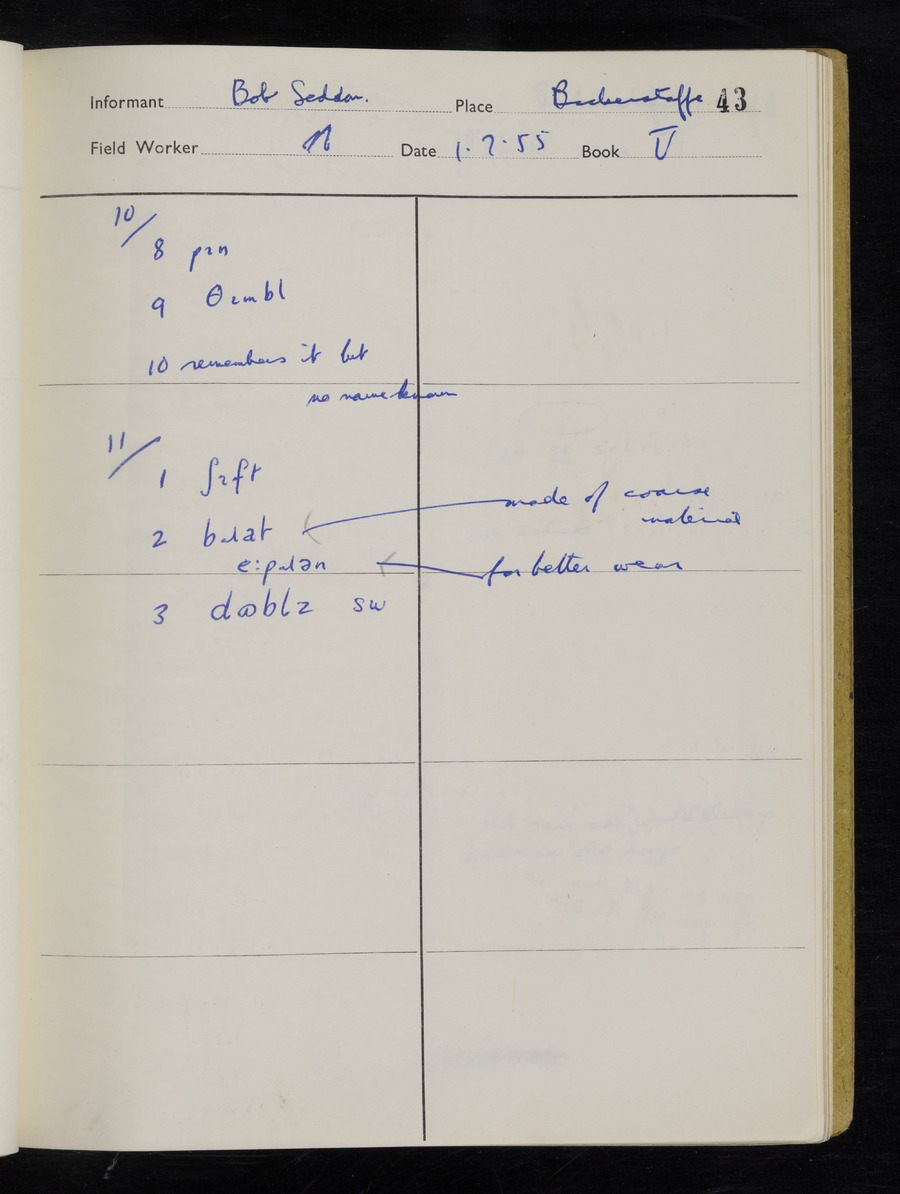 Informant Bob Seddon. Place Bickerstaffe 43
Field Worker Date 1.7.55 Book V
10/
8 pɪn
9 θɪmbl
10 remembers it but
no name known
11/
1 ʃɪft
2 bɹat made of coarse
material
e:pɹən for better wear
3 dɷblɪ